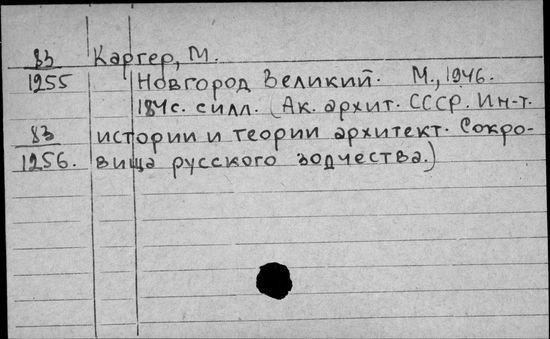 83 Каргер, М.
1255 Новгород Великий. М., 1946.
184с. силл. (Ак. архит. СССР. Ин-т.
83 истории и теории архитект. Сокро-
1256. вища русского зодчества.)